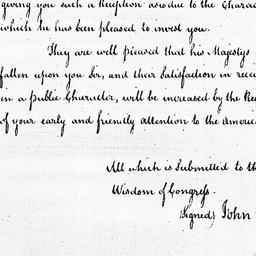 giving you such a Reception as is due to the Charac
which he has been pleased to invest you.
They are well pleased that his Majestys
fallen upon you Sir, and their Satisfaction in recei
in a public Character, will be increased by the Rec
of your early and friendly attention to the America
All which is Submitted to th
Wisdom of Congress.
Signed) John